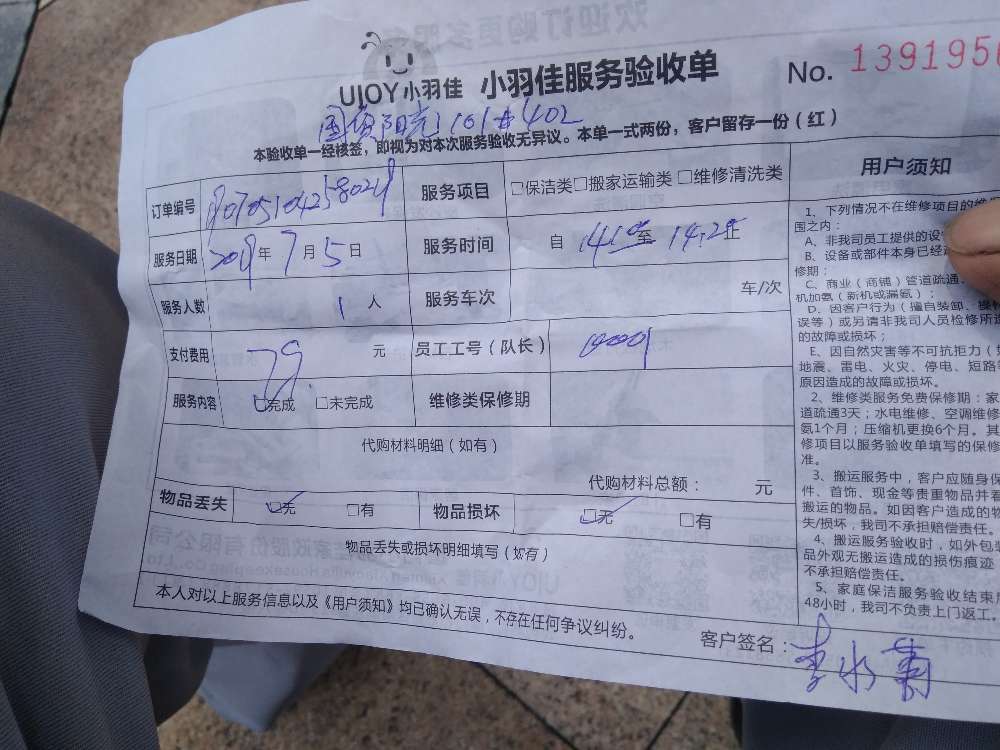 UJOY小羽佳 小羽佳服务验收单 No. 1391956
阳光101#402
本验收单一经核签，即视为对本次服务验收无异议。本单一式两份，客户留存一份（红）
订单编号 服务项目 □保洁类□搬家运输类 □维修清洗类
服务日期 2019年7月5日 服务时间 自
服务人数 1 人 服务车次 车/次
支付费用 79 元 员工工号（队长）
服务内容 □完成 □未完成 维修类保修期
代购材料明细（如有）
代购材料总额： 元
物品丢失 □无 □有 物品损坏 □无 □有
物品丢失或损坏明细填写（如有）
本人对以上服务信息以及《用户须知》均已确认无误，不存在任何争议纠纷。
客户签名：李水菊
用户须知
1、下列情况不在维修项目的
围之内：
A、非我司员工提供的设
B、设备或部件本身已经
修期；
C、商业（商铺）管道疏通、
机加氨（新机或漏氨）；
D、因客户行为（擅自装卸、操
误等）或另请非我司人员检修所
的故障或损坏；
E、因自然灾害等不可抗拒力（
地震、雷电、火灾、停电、短路
原因造成的故障或损坏。
2、维修类服务免费保修期：家
道疏通3天；水电维修、空调维修
氨1个月；压缩机更换6个月。其
修项目以服务验收单填写的保修
准。
3、搬运服务中，客户应随身保
件、首饰、现金等贵重物品并看
搬运的物品。如因客户造成的物
失/损坏，我司不承担赔偿责任。
4、搬运服务验收时，如外包装
品外观无搬运造成的损伤痕迹
不承担赔偿责任。
5、家庭保洁服务验收结束后
48小时，我司不负责上门返工。